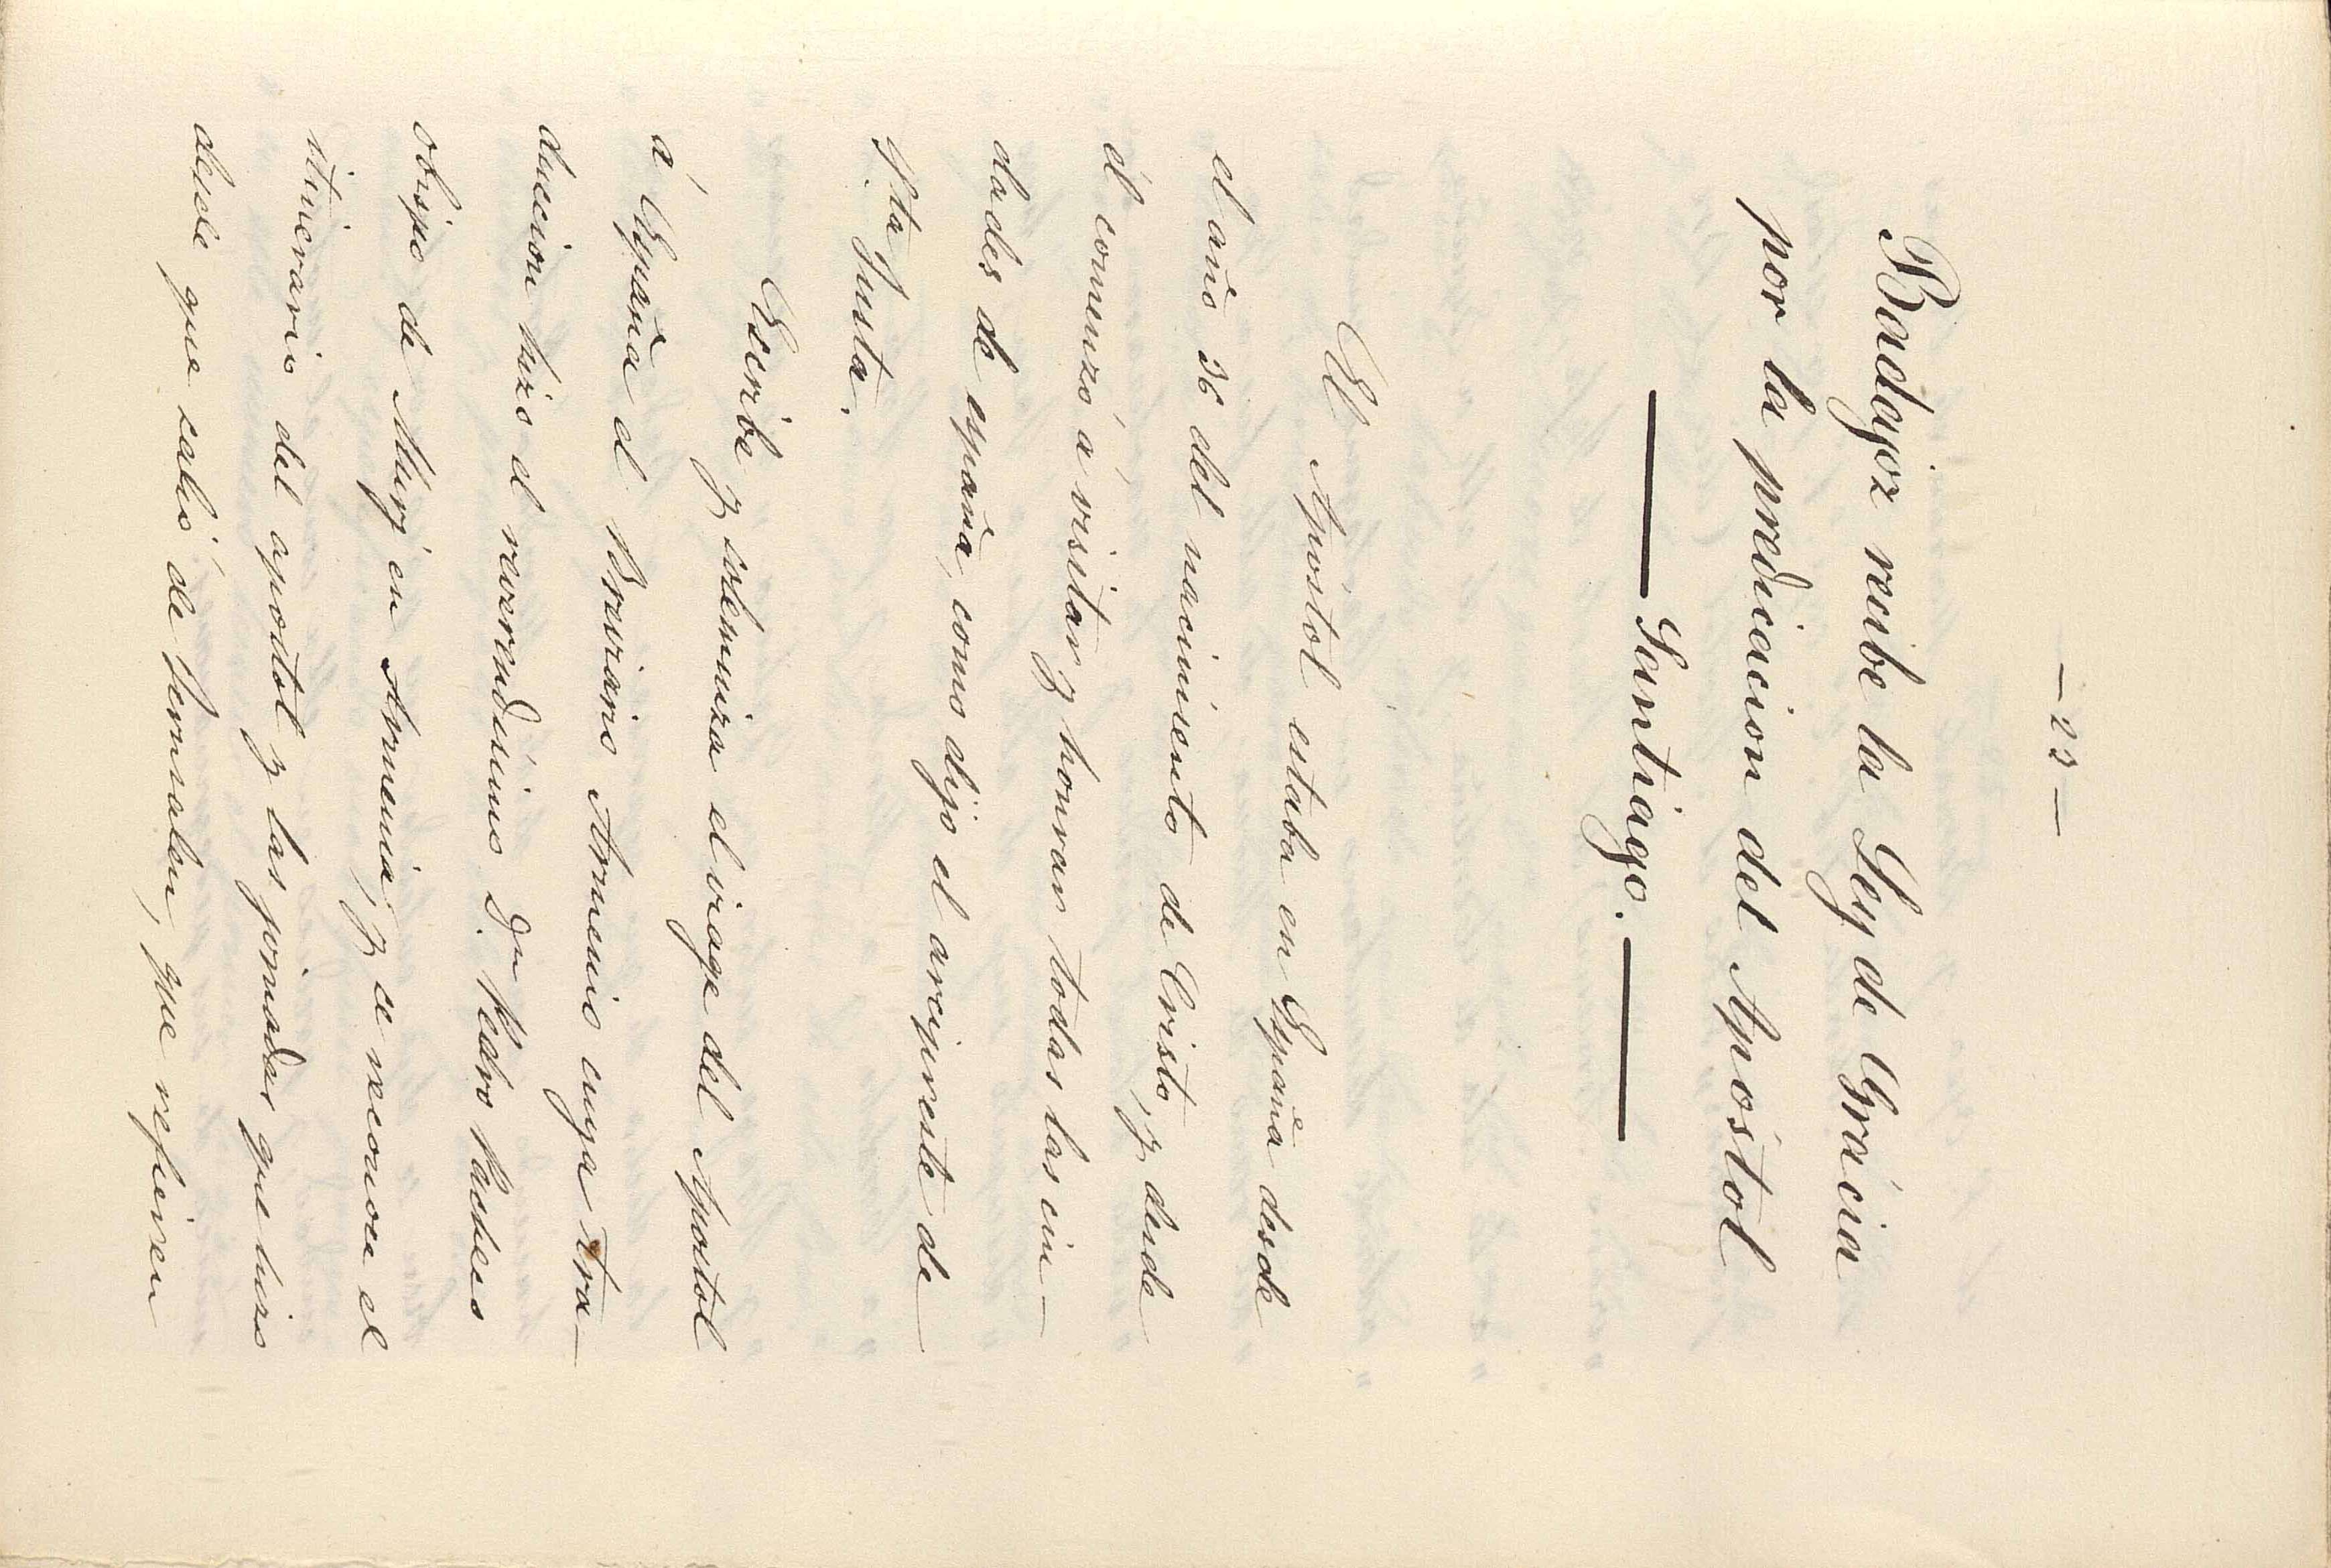 — 23 —
Badajoz recibe la Ley de Grácia
por la predicacion del Apóstol
Santiágo.
El Apóstol estaba en España desde
el año 36 del nacimiento de Cristo, y desde
él comenzó á visitar y honrar todas las ciu-
dades de españa, como dijo el arcipreste de
Sta Justa.
Escribe y solemniza el viage del Apostol
á España el Breviario Armenio cuya tra-
duccion hizo el reverendísimo Dn. Pedro Paulees
obispo de Nuxj en Armenia, y se reconoce el
itinerario del apostol y las jornadas que hizo
desde que salió de Jerusalen, que refieren